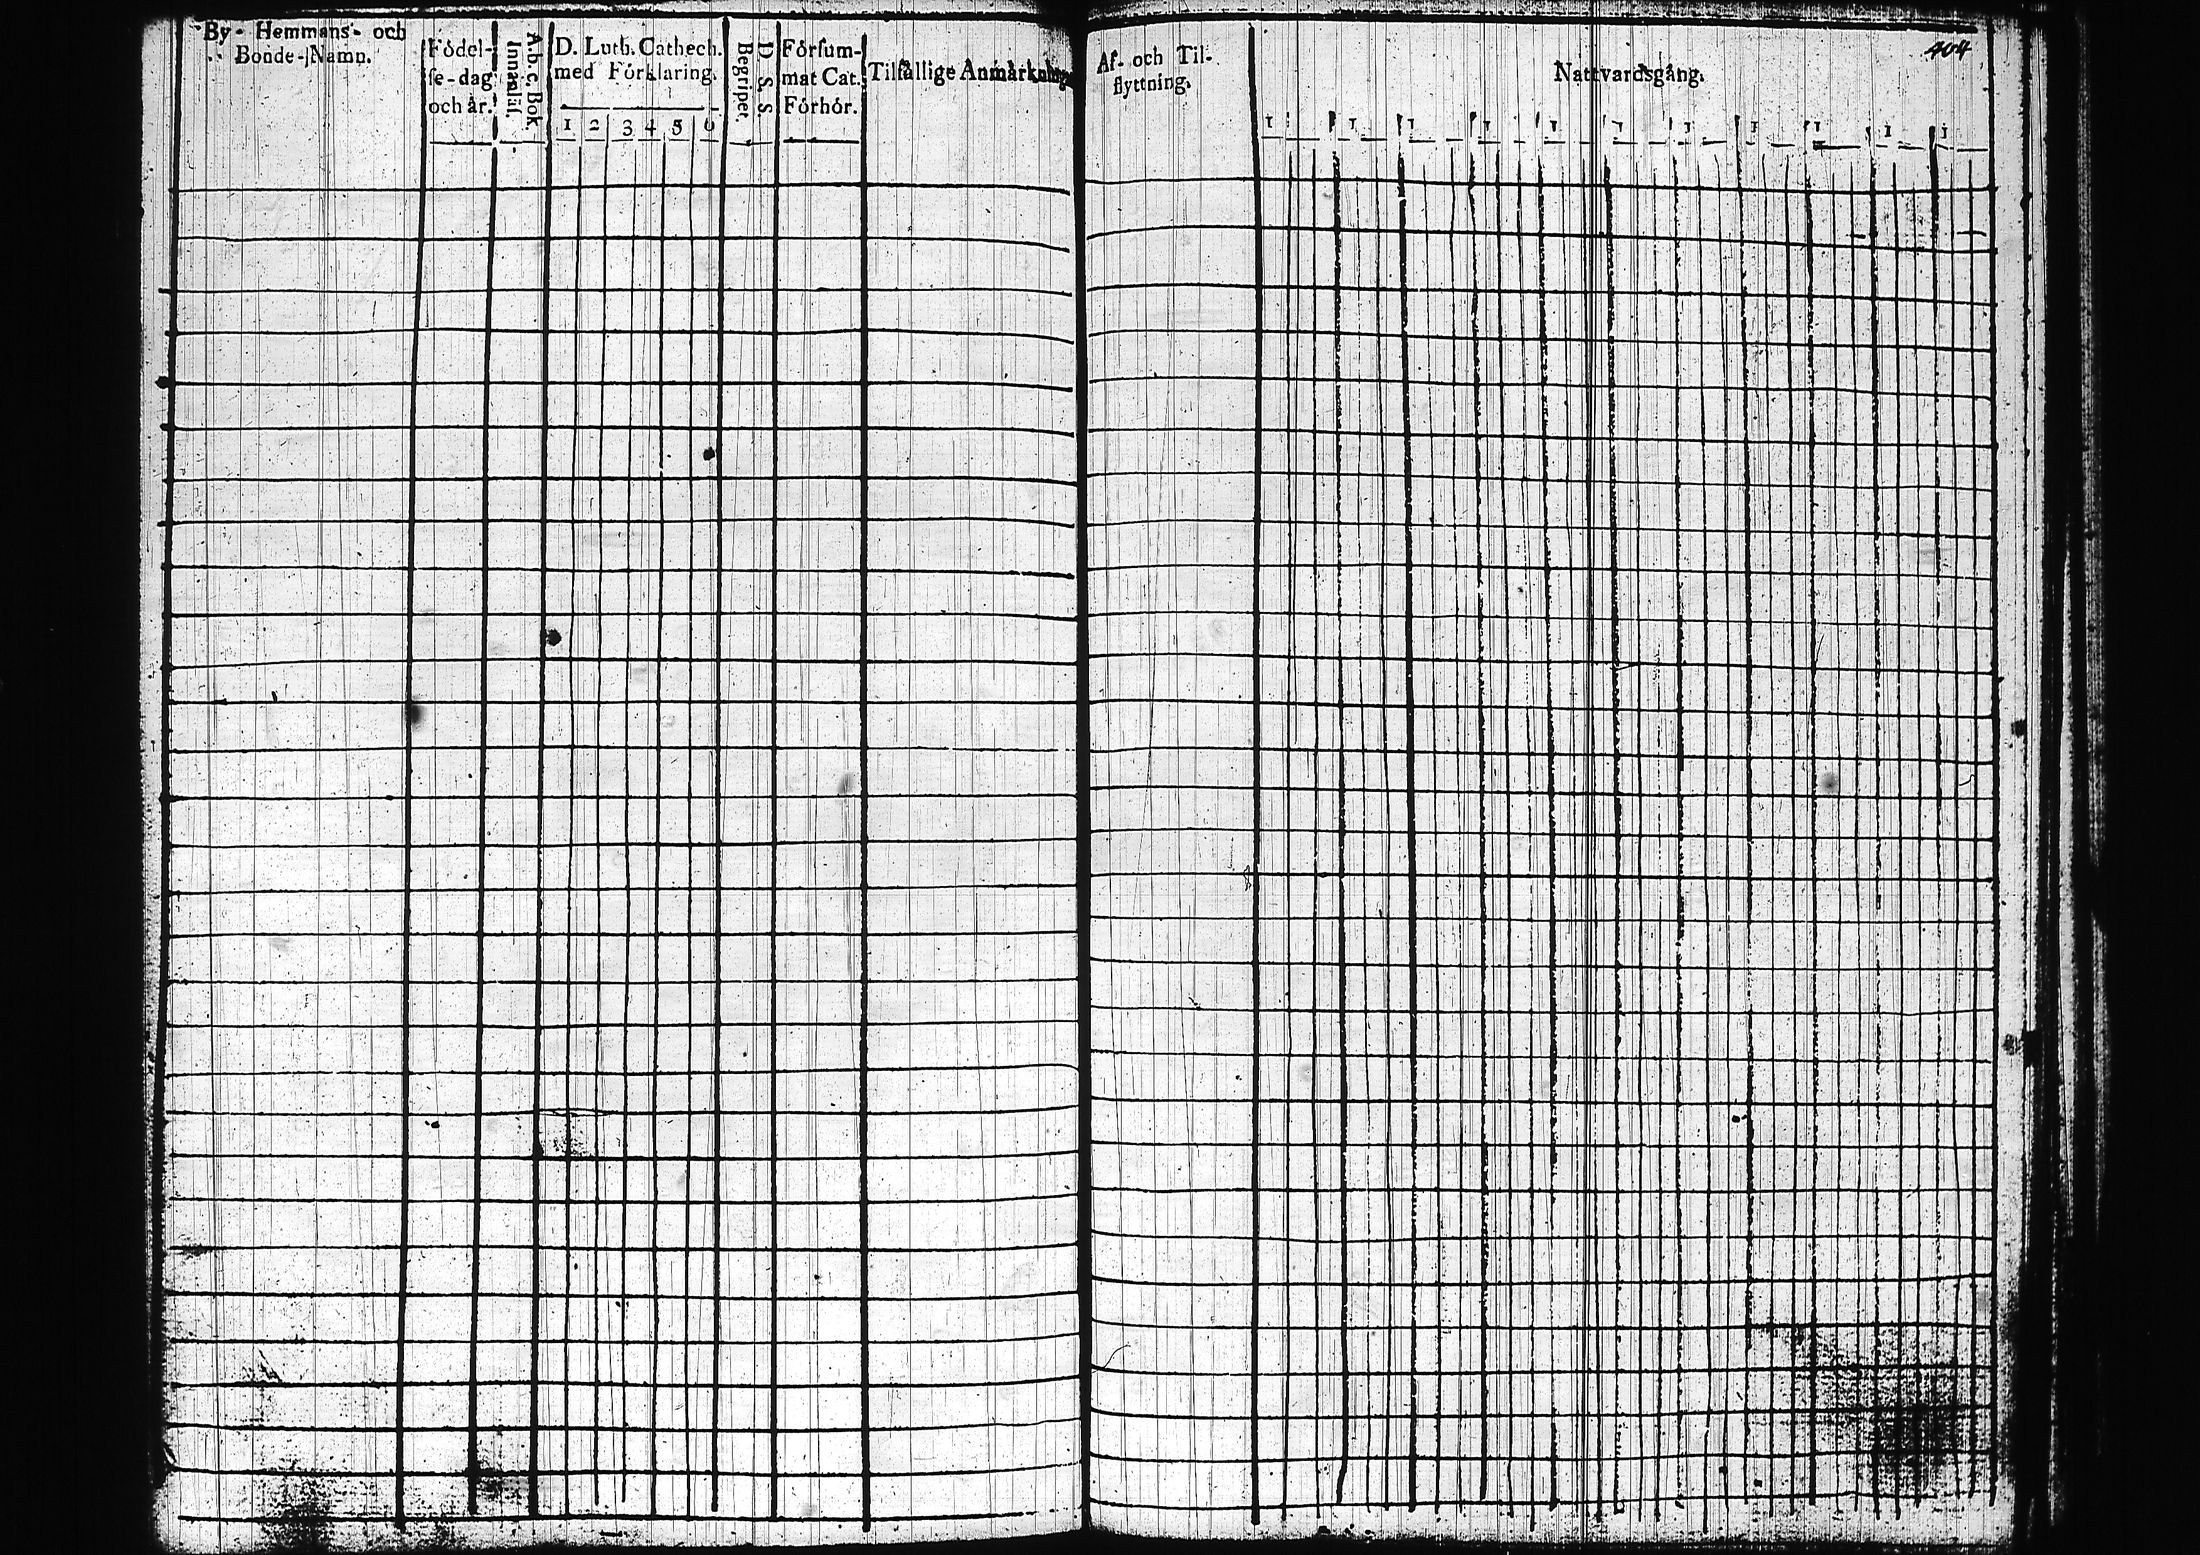 By- Hemmans- och
Bonde-Namn.
Födel-
se-dag
och år.
A.b.c. Bok.
Innanläs.
D. Luth. Cathech.
med Förklaring.
1 2 3 4 5 6
D. S. S.
Begripet.
Försum-
mat Cat.
Förhör.
Tilfällige Anmärkning
Af- och Til-
flyttning.
Nattvardsgång.
404
1 1 1 1 1 1 1 1 1 1 1